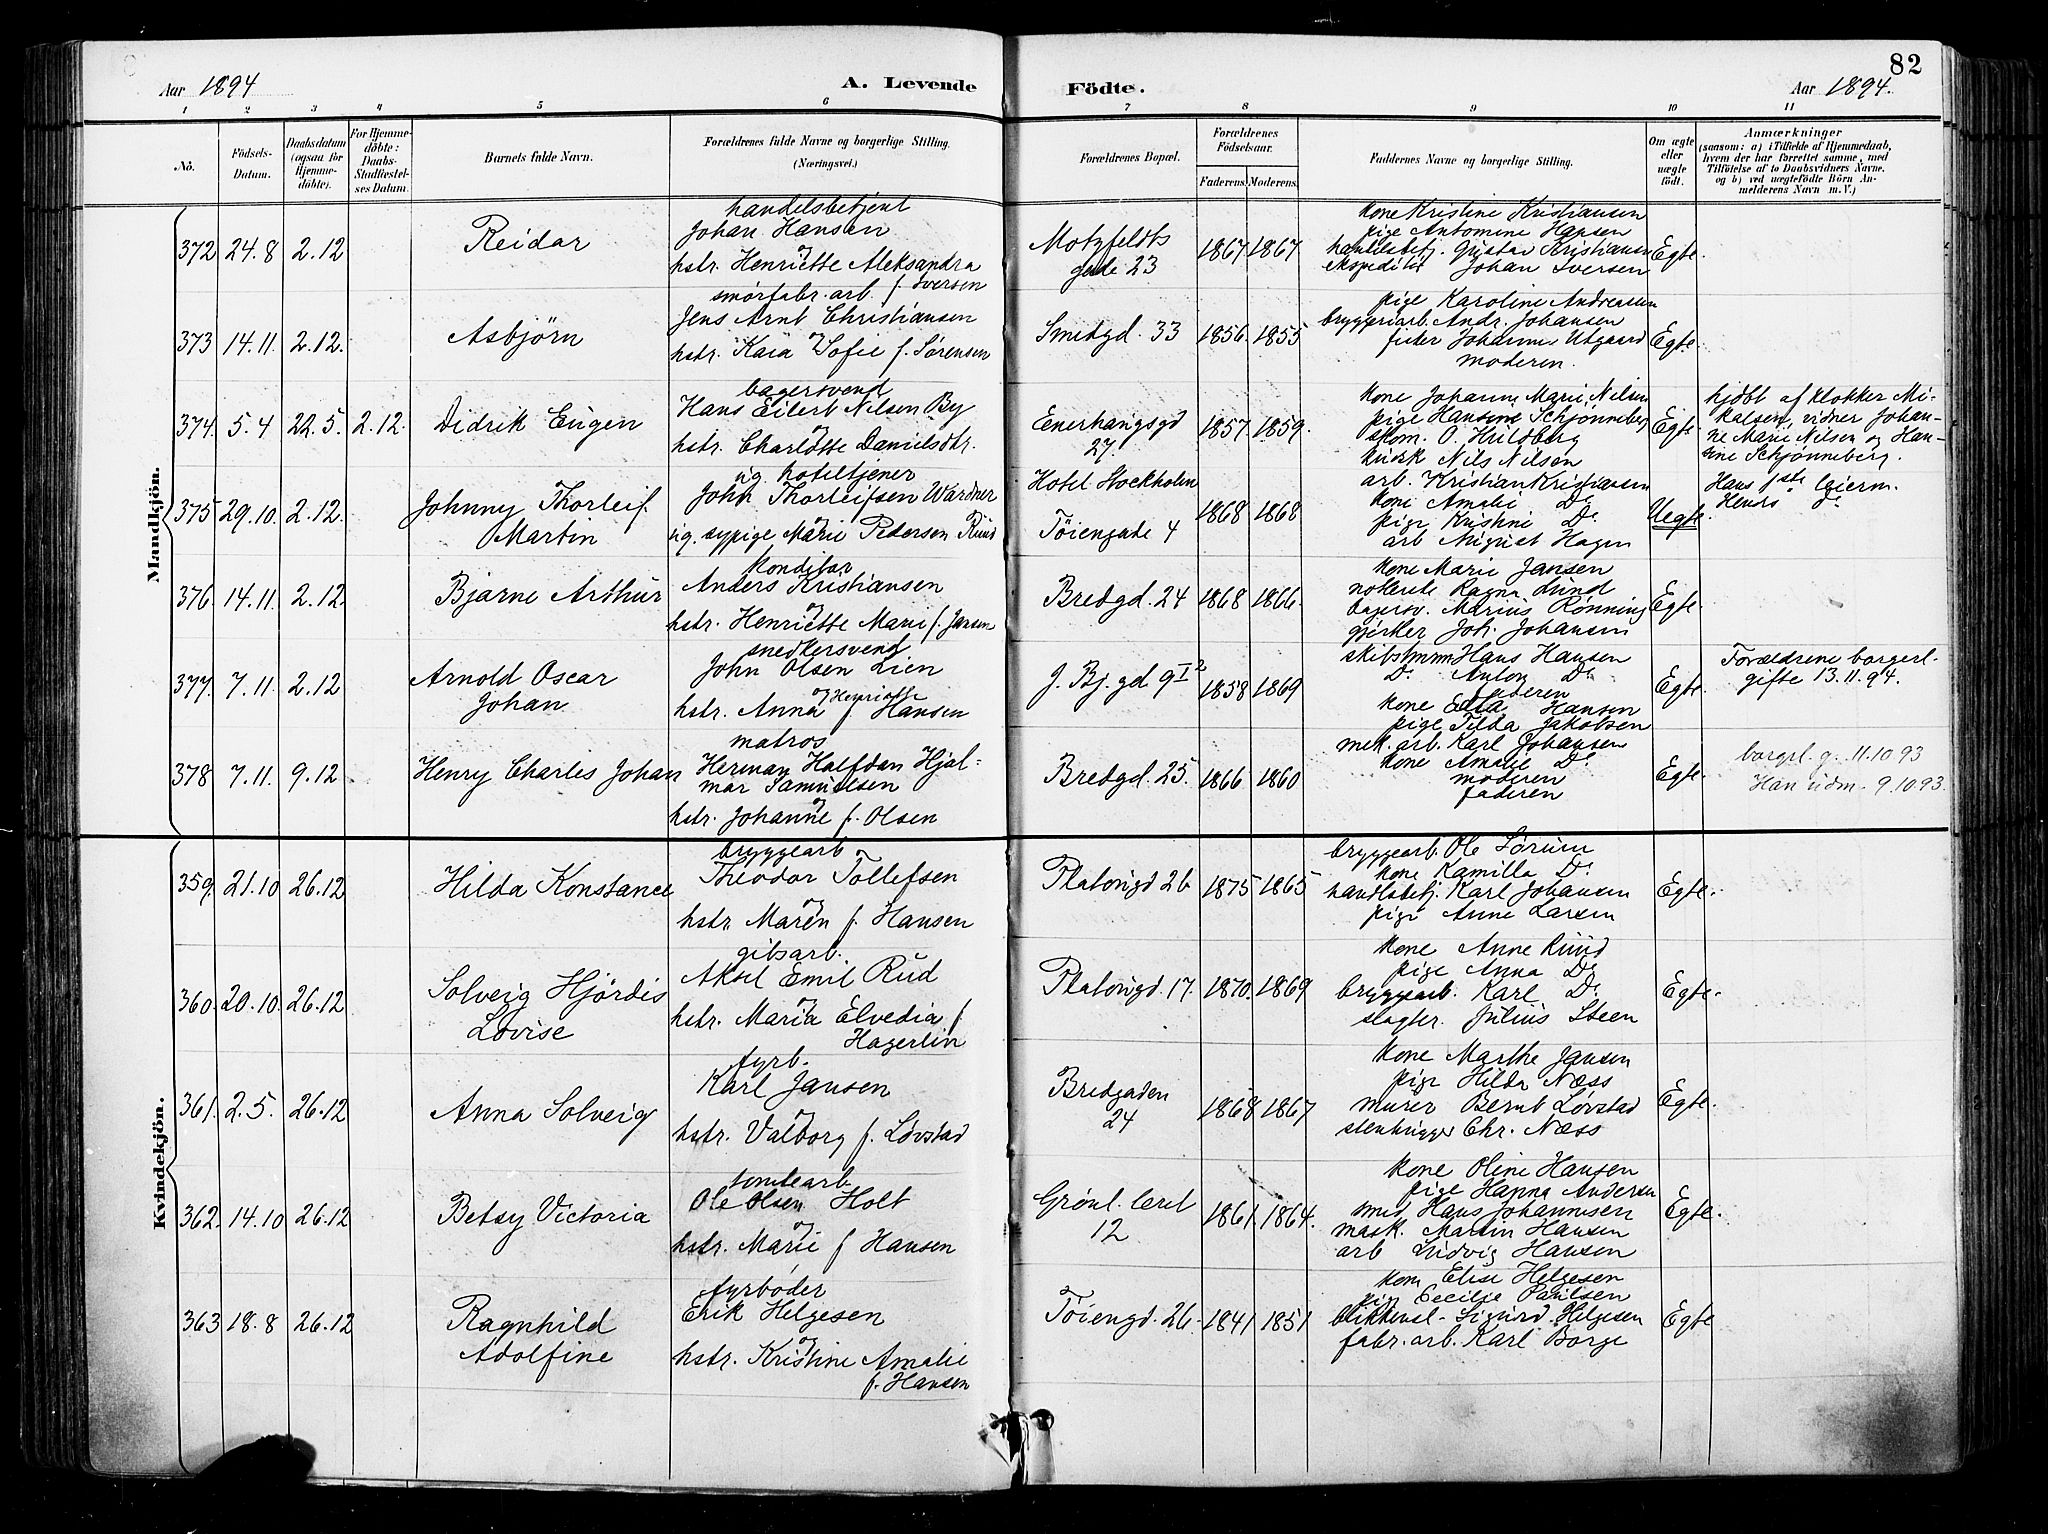 82
Aar 1894
A. Levende
Födte.
Aar 1894.
1 2 3 4 5 6 7 8 9 10 11
No.
Födsels-
Datum.
Daabsdatum
(ogsaa for
Hjemme-
döbte).
For Hjemme-
döbte:
Daabs-
Stadfæstel-
ses Datum.
Barnets fulde Navn.
Forældrenes fulde Navne og borgerlige Stilling.
(Næringsvei.)
Forældrenes Bopæl.
Forældrenes
Födselsaar.
Faderens. Moderens.
Faddernes Navne og borgerlige Stilling.
Om ægte
eller
uægte
födt.
Anmærkninger
(saasom: a) i Tilfælde af Hjemmedaab,
hvem der har forrettet samme, med
Tilföielse af to Daabsvidners Navne,
og b) ved uægtefödte Börn An-
melderens Navn m. V.)
Mandkjön.
372 24.8 2.12
Reidar
handelsbetjent
Johan Hansen
og
hstr. Henriette Aleksandra
f. Iversen
Motzfeldts
gade 23
1867 1867
kone Kristine Kristiansen
pige Antomine Hansen
handelsbetj. Gustav Kristiansen
ekspeditör Johan Iversen
Egte
373 14.11. 2.12.
Asbjörn
smörfabr. arb.
Jens Arnt Christiansen
og
hstr. Kaia Sofie f. Sørensen
Smedgd. 33
1856. 1855
pige Karoline Andreasen
bryggeriarb. Andr. Johansen
Johannes Utgaard
moderen.
Egte.
374. 5.4 22.5. 2.12.
Didrik Eugen
bagersvend
Hans Eilert Nilsen By
og
hstr. Charlotte Danielsdtr.
Enerhaugsgd
27.
1857. 1859.
kone Johanne Marie Nilsen
pige Hansine Schjønneberg
skom. O. Huldberg
kusk Nils Nilsen
Egte
hjdbt af klokker Mi-
kalsen, vidner Johan-
ne Marie Nilsen og Han-
sine Schjønneberg.
375 29.10. 2.12.
Johnny Thorleif
Martin
ug. hoteltjener
John Thorleifsen Wardner
og
ug. sypige Marie Pedersen Ruud
Hotel Stockholm
Töiengade 4
1868 1868
arb. Kristian Kristiansen
kone Amalie Do
pige Kristine Do
arb August Hagen
Uegte.
Hans 1ste leierm.
Hendes Do
376. 14.11. 2.12.
Bjarne Arthur
konditor
Anders Kristiansen
og
hstr. Henriette Marie f. Jansen
Bredgd. 24
1868 1866.
kone Marie Jansen
Ragna Lund
bagersv. Marius Rønning
gjörtler Joh. Johansen
Egte.
377. 7.11. 2.12
Arnold Oscar
Johan
snedkersvend
John Olsen Lien
og Henriette
hstr. Anna f. Hansen
J. Bj. gd. 9 I 2
1858 1869
skibstmrm Hans Hansen
Do Anton Do
faderen
kone Edla Hansen
pige Tilda Jakobsen
Egte.
Forældrene borgerl.
gifte 13.11.94.
378 7.11. 9.12
Henry Charles Johan
matros
Herman Halfdan Hjal-
mar Samuelsen
og
hstr. Johanne f. Olsen
Bredgd. 25.
1866 1860
mek. arb. Karl Johansen
kone Amalie Do
moderen
faderen
Egte.
borgerl. g. 11.10.93
Han udm. 9.10.93.
Kvindekjön.
359. 21.10 26.12
Hilda Konstance
bryggearb
Theodor Tollefsen
og
hstr. Maren f. Hansen
Platougd 26
1875 1865
bryggearb. Ole Sørum
kone Kamilla Do
handlsbetj. Karl Johansen
pige Anne Larsen
Egte.
360. 20.10. 26.12
Solveig Hjördis
Lovise
gibsarb.
Aksel Emil Rud
og
hstr. Maria Elvedia f
Hagerlin
Platougd. 17.
1870. 1869
kone Anne Ruud
pige Anna Do
bryggearb. Karl Do
slagter. Julius Steen
Egte.
361. 2.5. 26.12
Anna Solveig
fyrb.
Karl Jansen
og
hstr. Valborg f. Løvstad
Bredgaden
24
1868 1867
kone Marthe Jansen
pige Hilda Næss
murer Bernt Løvstad
stenbrygger Chr. Næss
Egte.
362. 14.10 26.12
Betsy Victoria
tomtearb
Ole Olsen Holt
og
hstr. Marie f Hansen
Grønl. leret
12
1861. 1864.
kone Oline Hansen
pige Hanna Andersen
smed Hans Johannesen
mask. Martin Hansen
arb Ludvig Hansen
Egte.
363 18.8 26.12
Ragnhild
Adolfine
fyrböder
Erik Helgesen
og
hstr. Kristine Amalie
f. Hansen
Töiengd. 26.
1841 1851
kone Elise Helgesen
pige Cecilie Paulsen
blikkensl. Sigurd Helgesen
fabr. arb. Karl Borge
Egte